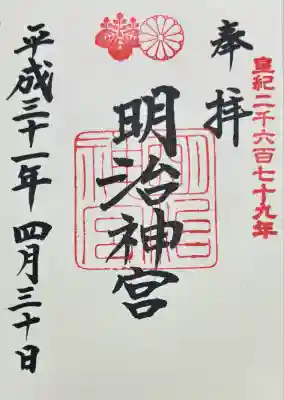 皇紀二千六百七十九年
奉拝
明治神宮
明治神宮
平成三十一年 四月三十日